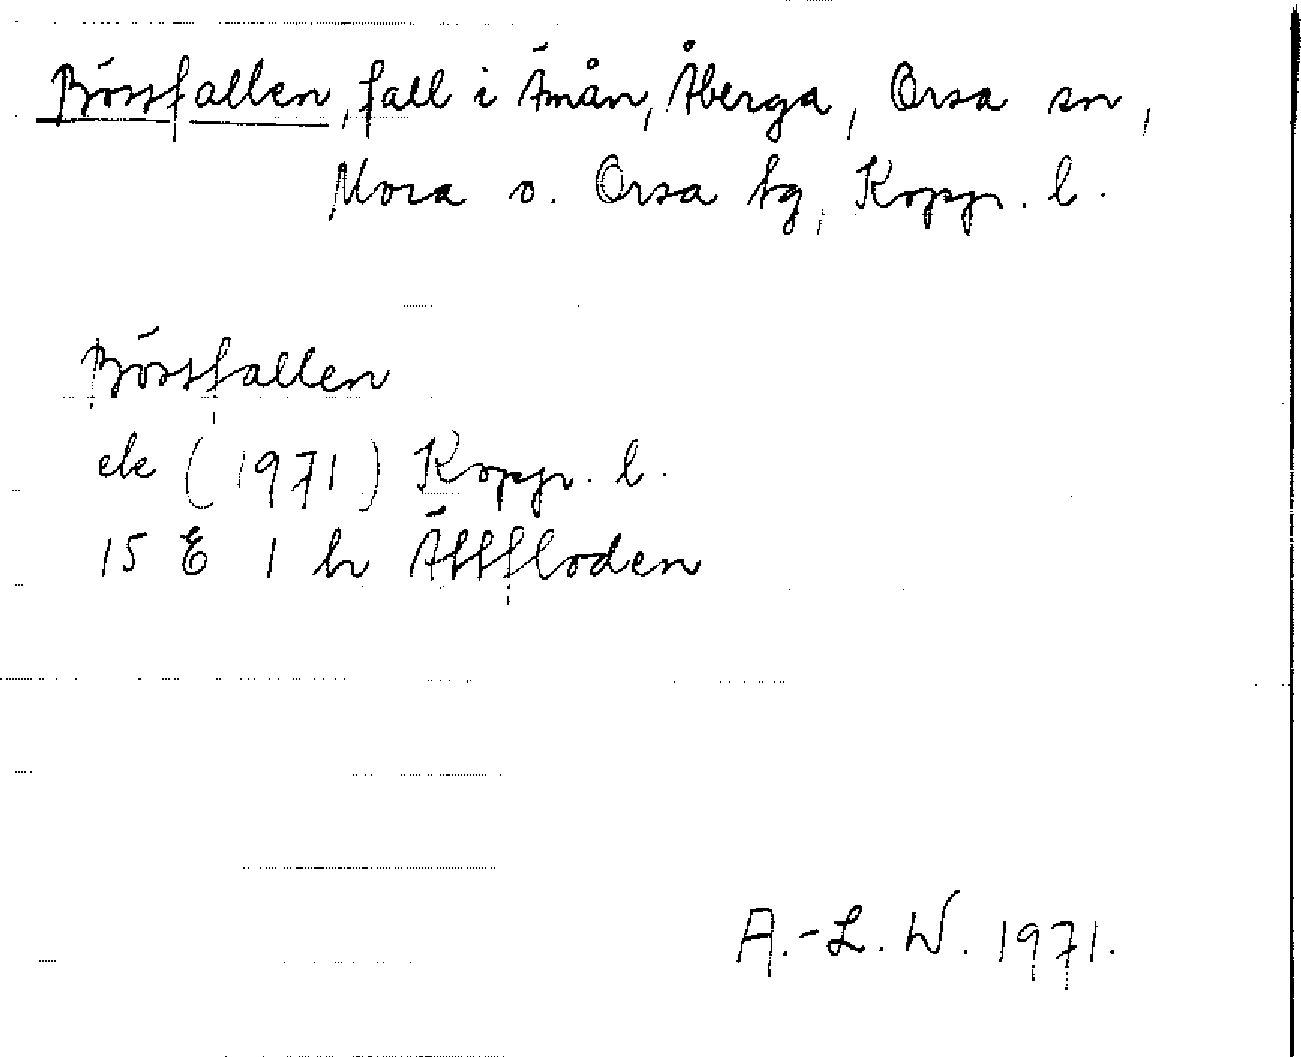 Böstfallen, fall i Ämån, Åberga, Orsa sn,
Mora o. Orsa tg, Koppr. l.
Böstfallen
ek (1971) Koppr. l.
15 E 1 h Ättfloden
A.-L. W. 1971.